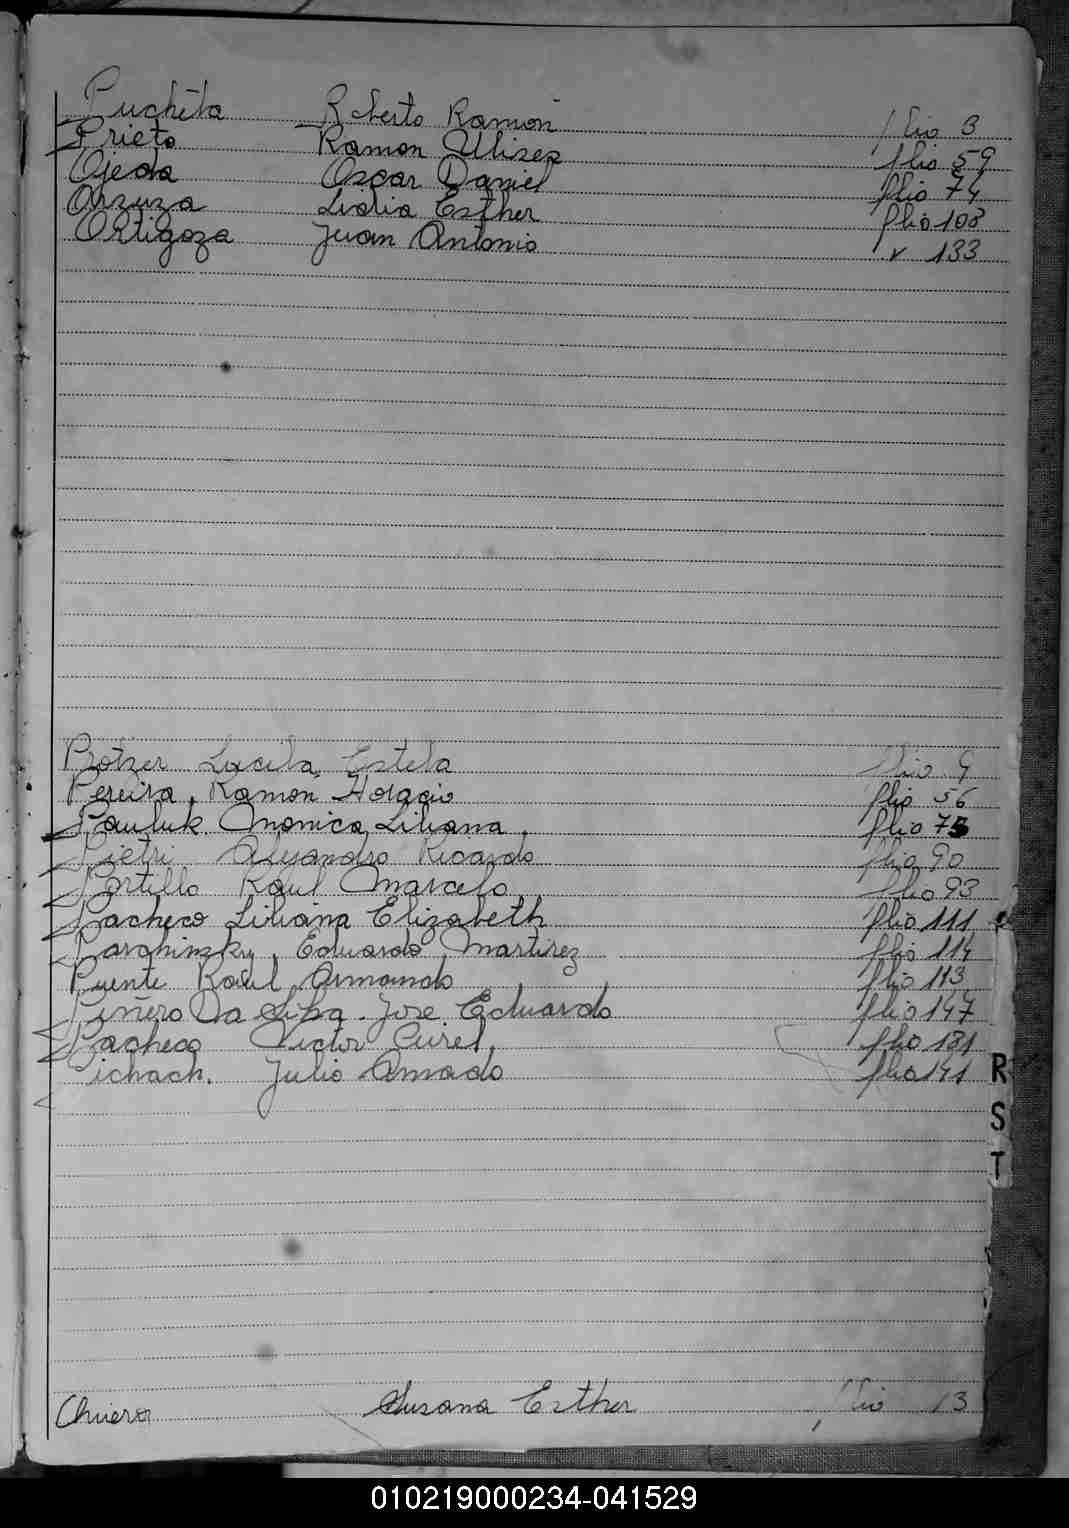 Pucheta Roberto Ramon folio 3
Prieto Ramon Ulises folio 59
Ojeda Oscar Daniel folio 74
Orzuza Lidia Esther folio 108
Ortigoza Juan Antonio v 133
Protzer Lucila Estela folio 9
Pereira, Ramon Horacio folio 56
Pauluk Monica Liliana, folio 75
Pietri Alejandro Ricardo folio 90
Portillo Raul Marcelo, folio 93
Pacheco Liliana Elizabeth folio 111
Eduardo Martirez folio 114
Puente Raul Armando folio 113
Piñero Da Silva. Jose Eduardo folio 147
Pacheco Victor folio 181
Julio Amado folio 141
R
S
T
Susana Esther folio 13
010219000234-041529